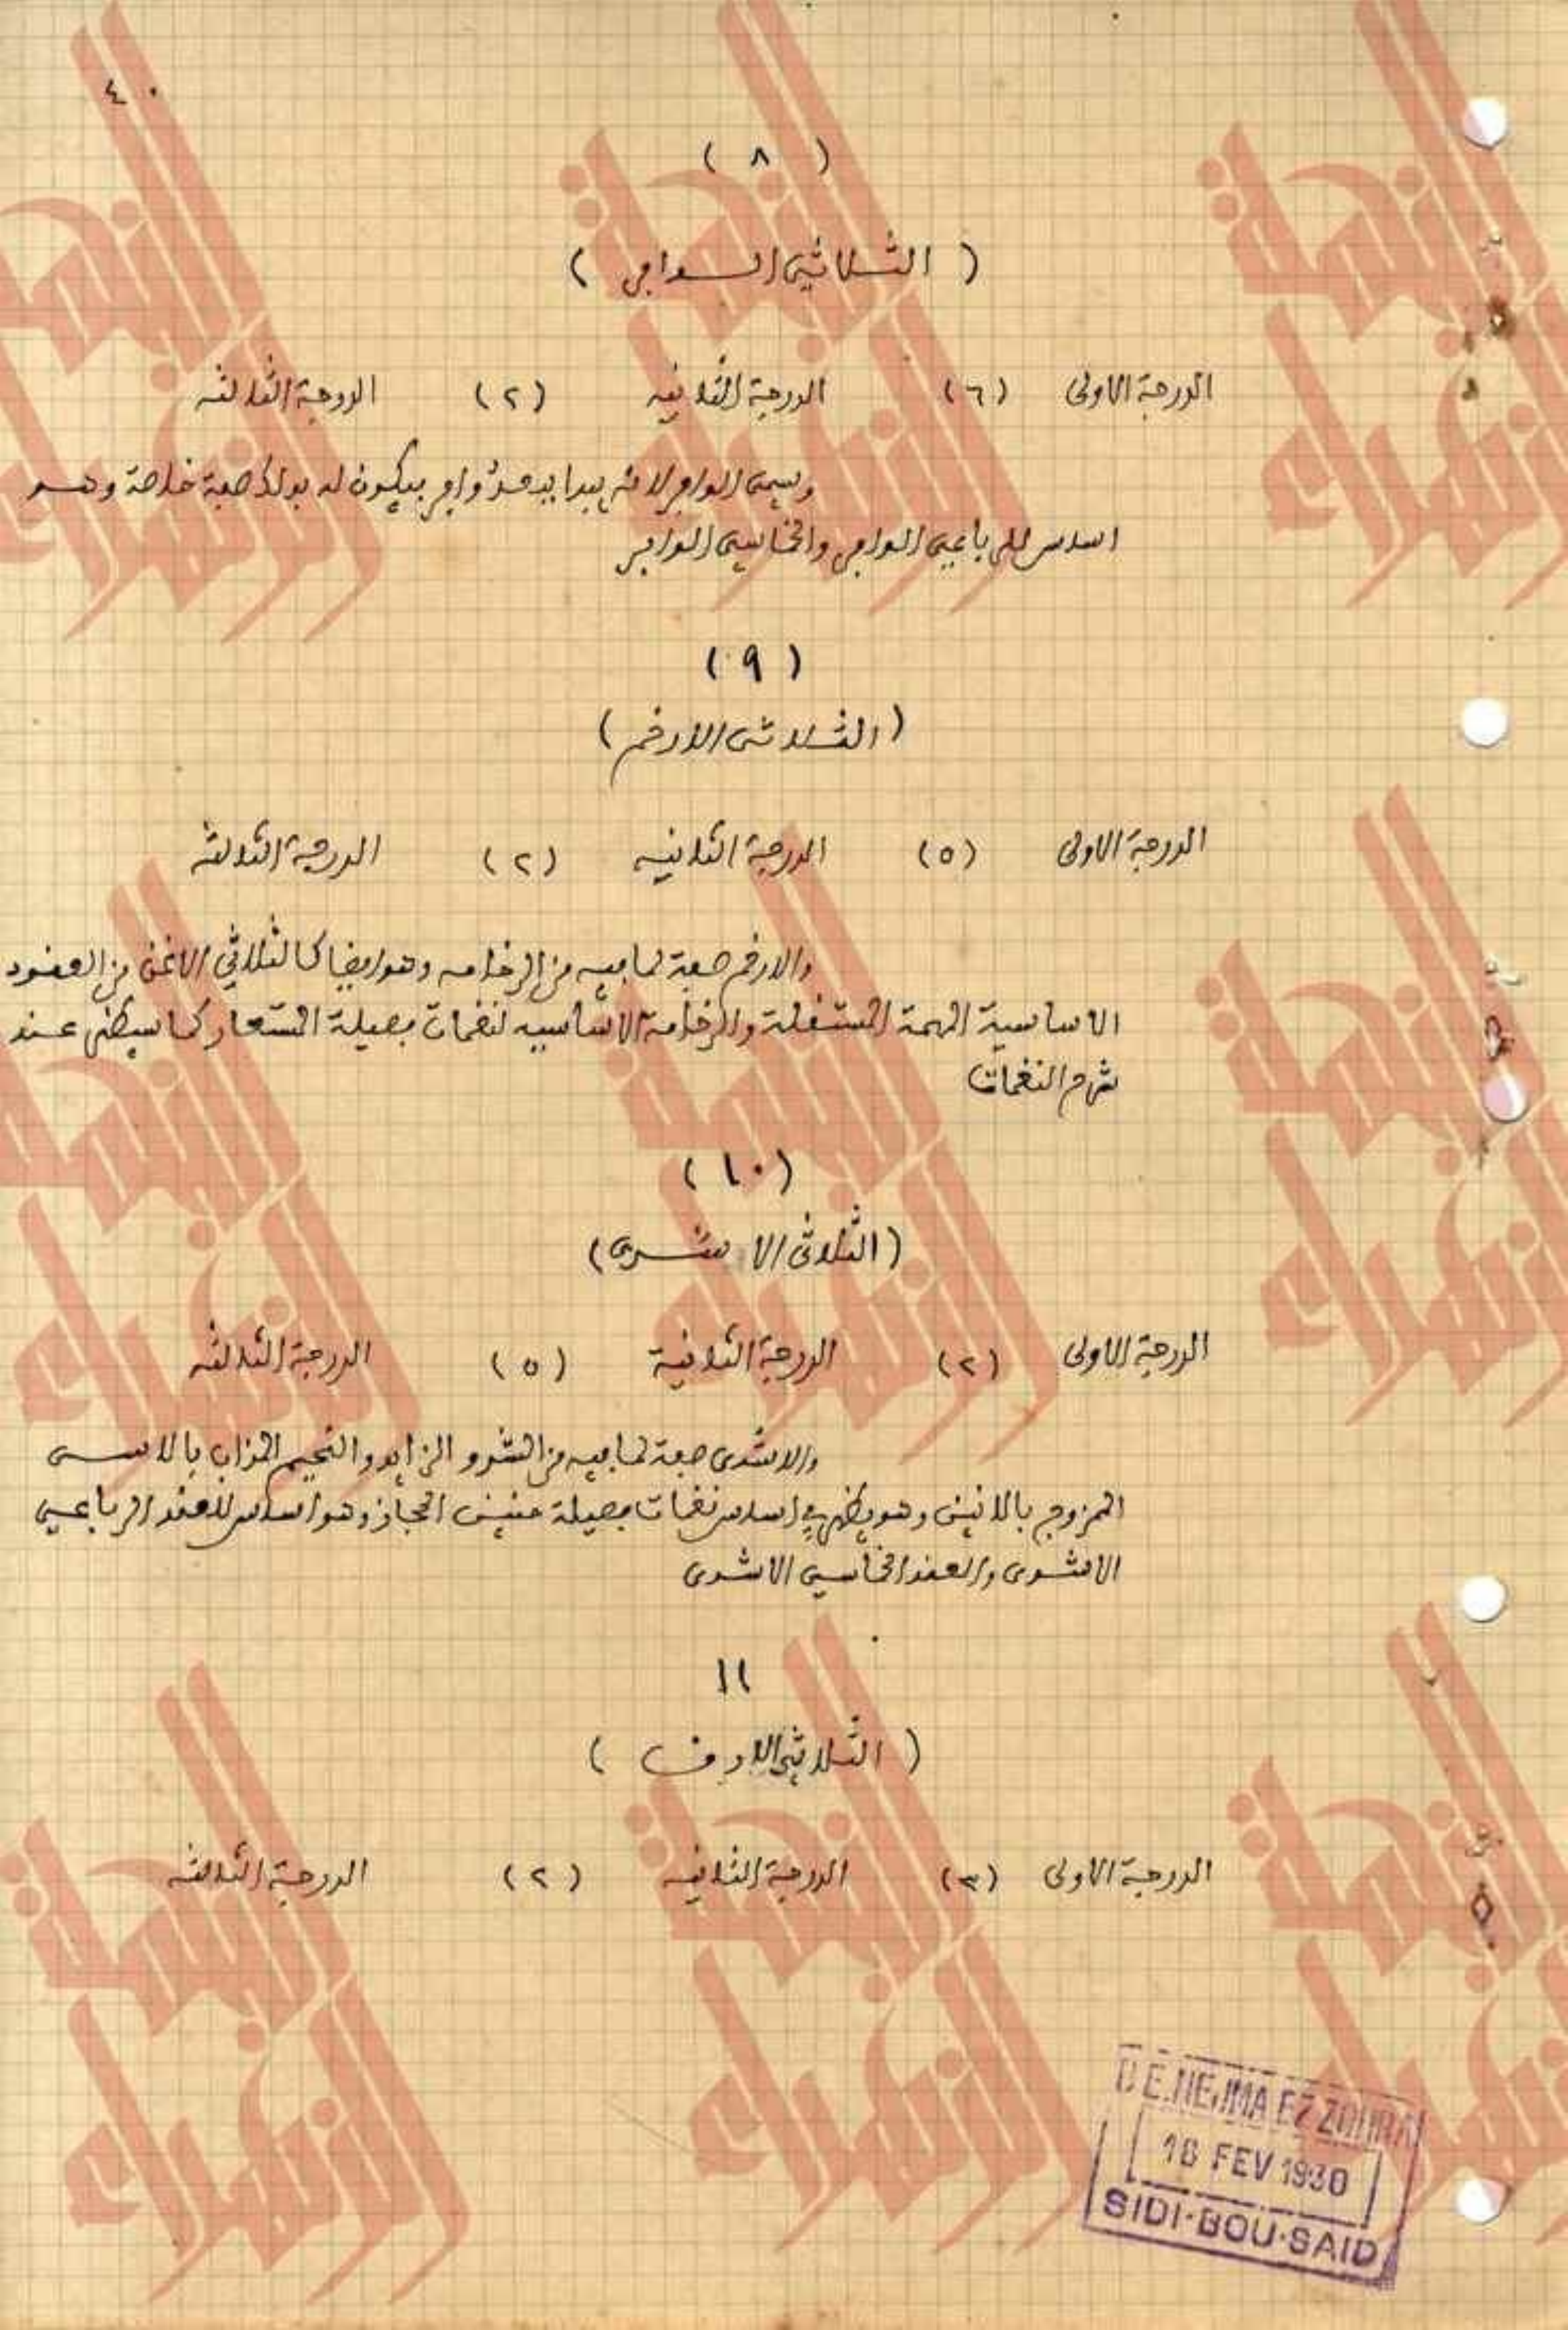 ٤٠
( ٨ )
( الثلاثي الوافر )
الدرجة الاولى (٦) الدرجة الثانيه (٢) الدرجة الثالثه
وسمي الوافر لانه يبدا ببعد وافر فيكون له بذلك صبغة خاصة وهو
اساس للرباعي الوافر والخماسي الوافر
(٩)
(الثلاثي الارخم)
الدرجة الاولى (٥) الدرجة الثانيه (٢) الدرجة الثالثه
والارخم صفة لما فيه من الرخامه وهو ايضا كالثلاثي الاغن من العقود
الاساسية المهمة المستقلة والرخامة الاساسيه لنغمات فصيلة المستعار كما سيظهر عند
شرح النغمات
(١٠)
(الثلاثي الاشدى)
الدرجة الاولى (٢) الدرجة الثانية (٥) الدرجة الثالثه
والاشدى صفة لما فيه من الشدو الزايد والنحيم المذاب بالاسى
الممزوج بالانين وهو يظهر في اساس نغمات فصيلة الحجاز وهو اساس للعقد الرباعي
الاشدى والعقد الخماسي الاشدى
١١
( الثلاثي الارق )
الدرجة الاولى (٣) الدرجة الثانيه (٢) الدرجة الثالثه
D'E.NEJMA EZZOHRA
16 FEV 1930
SIDI-BOU-SAID
النجمة الزهراء